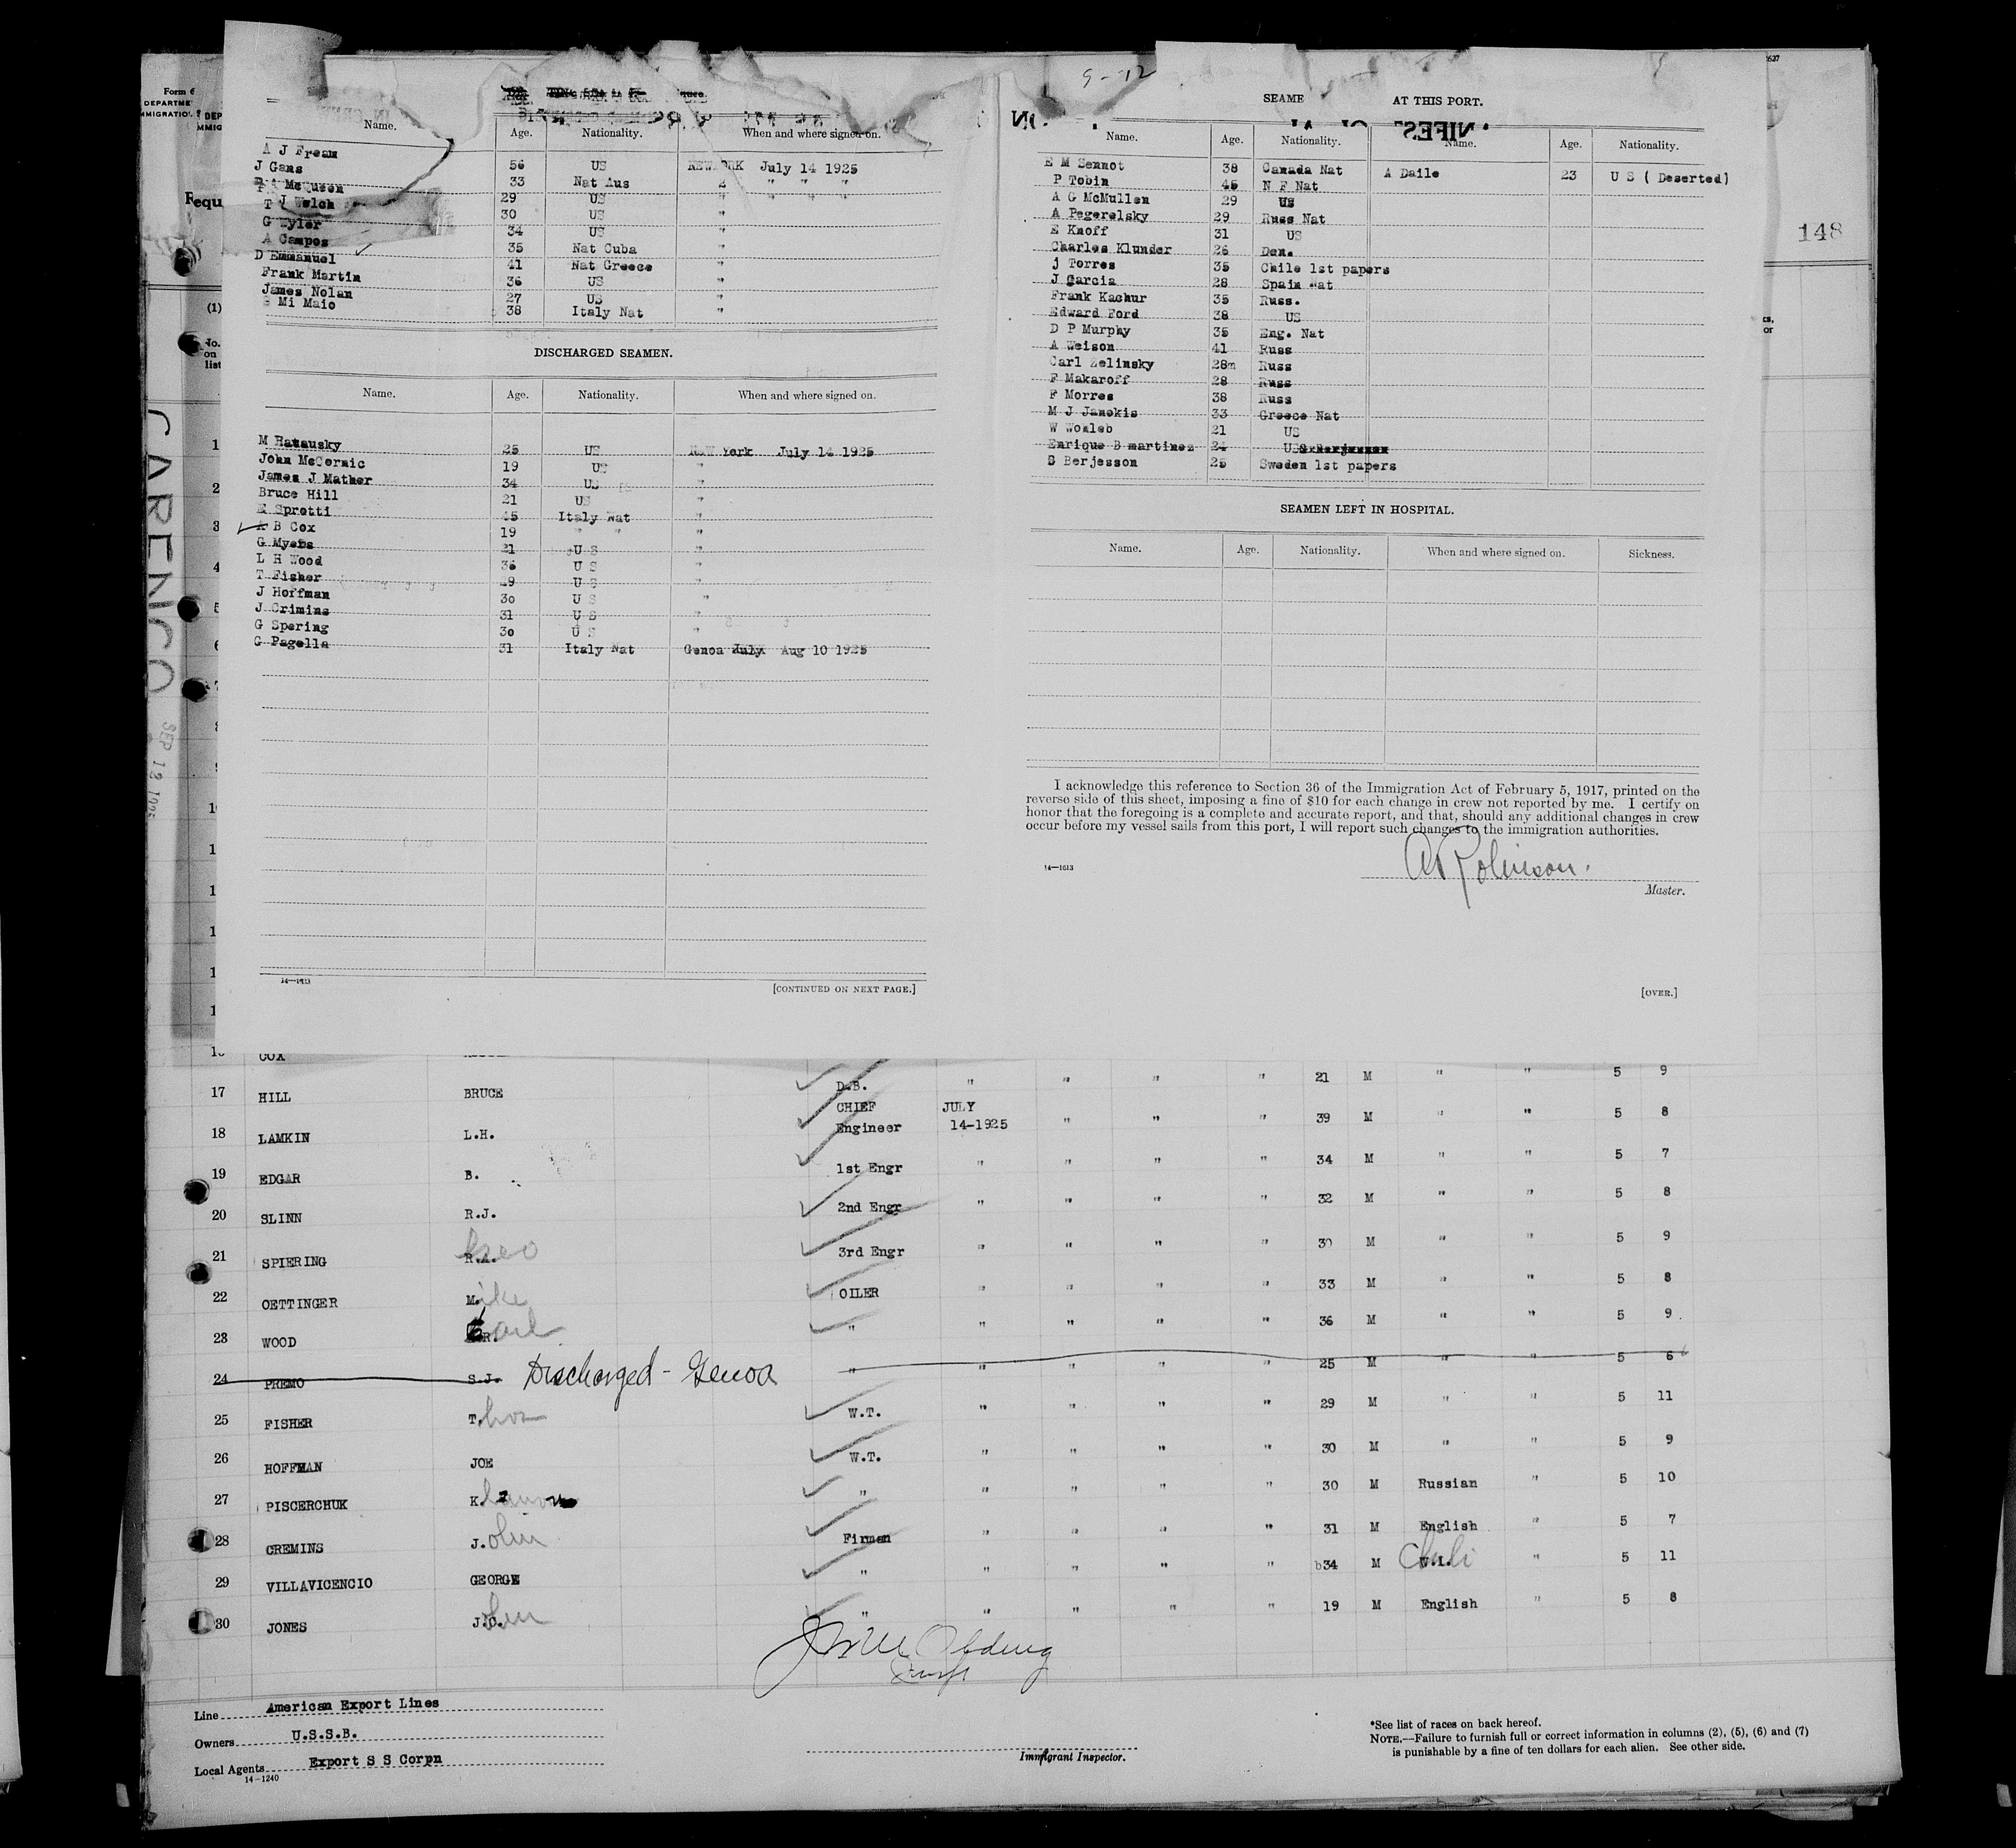 Form 6
DEPARTME
MMIGRATIO
DEP
MMIG
Requ
(1)
No.
on
list
CARENCO
SEP 12 1925
148
9-12
Name. Age. Nationality. When and where signed on.
A J Fream 56 US NEWYORK July 14 1925
J Gans 33 Nat Aus " " " "
McQueen 29 US " " " "
T J Welch 30 US "
G Wyler 34 US "
A Campos 35 Nat Cuba "
D Emmanuel 41 Nat Greece "
Frank Martin 36 US "
James Nolan 27 US "
Mi Maio 38 Italy Nat "
DISCHARGED SEAMEN.
Name. Age. Nationality. When and where signed on.
M Ratausky 25 US New York July 14 1925
John McCormic 19 US "
James J Mather 34 US "
Bruce Hill 21 US "
E Spretti 45 Italy Nat "
A B Cox 19 " " "
G Myers 21 U S "
L H Wood 36 U S "
T Fisher 29 U S "
J Hoffman 30 U S "
J Crimins 31 U S "
G Spering 30 U S "
G Pagella 31 Italy Nat Genoa July Aug 10 1925
14—1613
[CONTINUED ON NEXT PAGE.]
SEAME AT THIS PORT.
Name. Age. Nationality. Name. Age. Nationality.
E M Sennot 38 Canada Nat A Daile 23 U S ( Deserted)
P Tobin 45 N F Nat
A G McMullen 29 US
A Pegerelsky 29 Russ Nat
E Knoff 31 US
Charles Klunder 26 Den.
j Torres 35 Chile 1st papers
J Garcia 28 Spain Nat
Frank Kachur 35 Russ.
Edward Ford 38 US
D P Murphy 35 Eng. Nat
A Weison 41 Russ
Carl Zelinsky 28m Russ
F Makaroff 28 Russ
F Morres 38 Russ
M J Janekis 33 Greece Nat
W Womleb 21 US
Enrique B martinez 24 US
S Berjesson 25 Sweden 1st papers
SEAMEN LEFT IN HOSPITAL.
Name. Age. Nationality. When and where signed on. Sickness.
I acknowledge this reference to Section 36 of the Immigration Act of February 5, 1917, printed on the
reverse side of this sheet, imposing a fine of $10 for each change in crew not reported by me. I certify on
honor that the foregoing is a complete and accurate report, and that, should any additional changes in crew
occur before my vessel sails from this port, I will report such changes to the immigration authorities.
14—1613
Robinson.
Master.
[OVER.]
COX
17 HILL BRUCE D.B. " " " " 21 M " " 5 9
18 LAMKIN L.H. CHIEF Engineer JULY 14-1925 " " " 39 M " " 5 8
19 EDGAR B. 1st Engr " " " " 34 M " " 5 7
20 SLINN R.J. 2nd Engr " " " " 32 M " " 5 8
21 SPIERING R.A. Geo 3rd Engr " " " " 30 M " " 5 9
22 OETTINGER M.ike OILER " " " " 33 M " " 5 8
23 WOOD Carl " " " " " 36 M " " 5 9
24 PREMO S.J. Discharged - Genoa " " " " " 25 M " " 5 6
25 FISHER T.hos W.T. " " " " 29 M " " 5 11
26 HOFFMAN JOE W.T. " " " " 30 M " " 5 9
27 PISCERCHUK K. " " " " " 30 M Russian " 5 10
28 CREMINS J.ohn Firman " " " " 31 M English " 5 7
29 VILLAVICENCIO GEORGE " " " " " 34 M W.I. Chili " 5 11
30 JONES J.C. ohn " " " " " 19 M English " 5 8
Line American Export Lines
Owners U.S.S.B.
Local Agents Export S S Corpn
14-1240
Immigrant Inspector.
*See list of races on back hereof.
NOTE.—Failure to furnish full or correct information in columns (2), (5), (6) and (7)
is punishable by a fine of ten dollars for each alien. See other side.